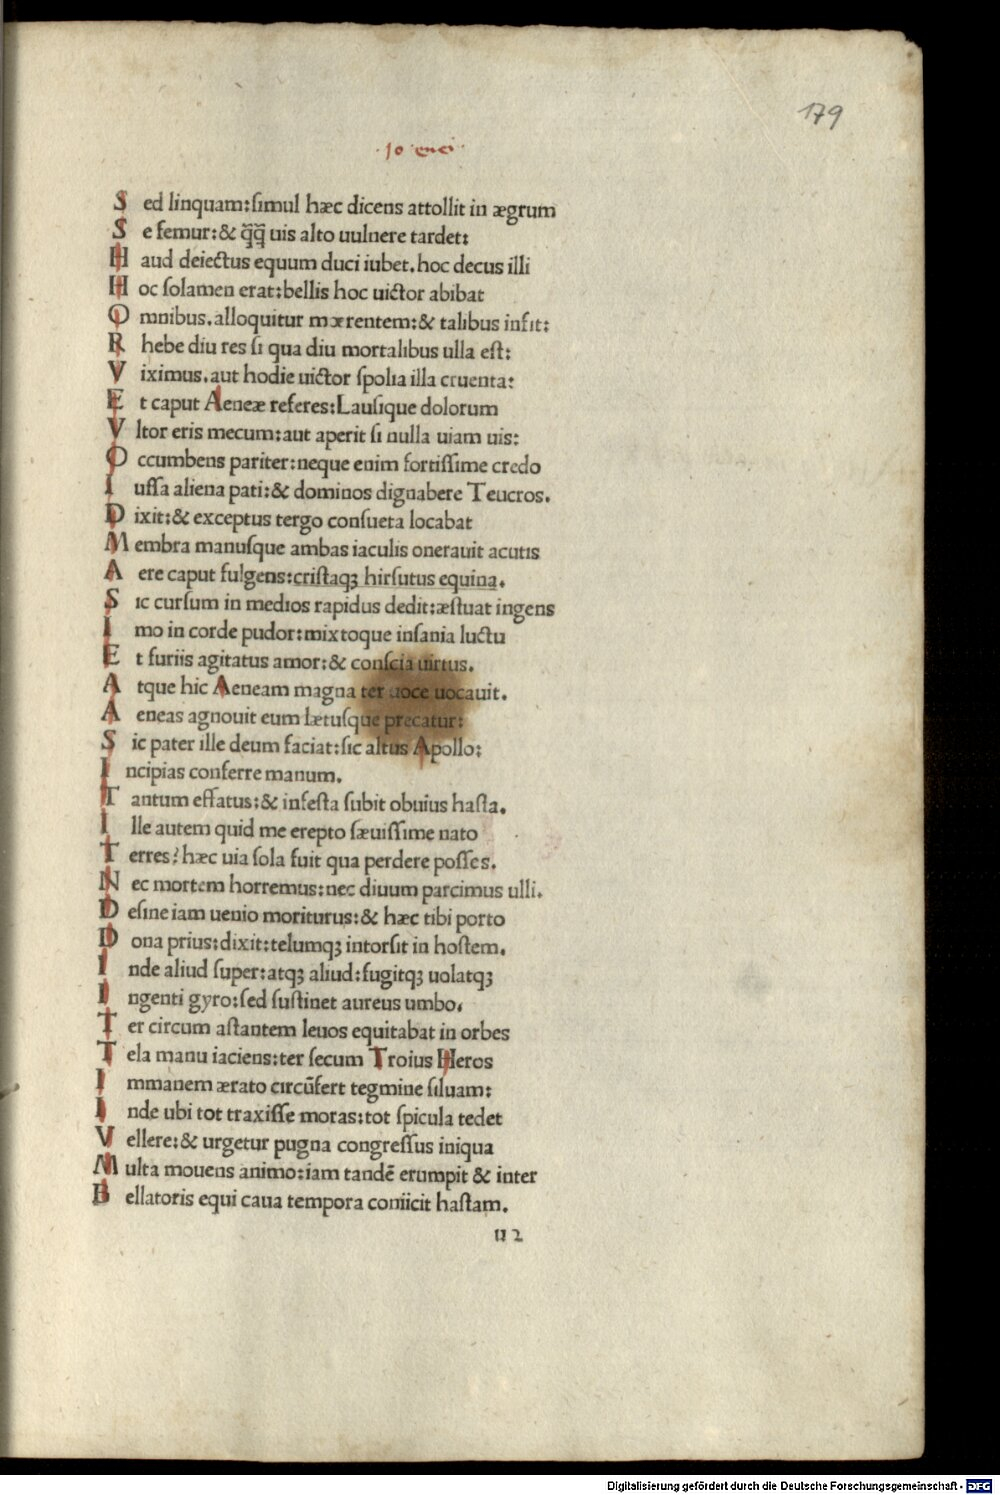 179
10 enei
Sed linquam:ſimul hæc dicens attollit in ægrum
Se femur:& q̃q̃ uis alto uulnere tardet:
Haud deiectus equum duci iubet.hoc decus illi
Hoc ſolamen erat:bellis hoc uictor abibat
Omnibus.alloquitur mærentem:& talibus infit:
Rhebe diu res ſi qua diu mortalibus ulla eſt:
Viximus.aut hodie uictor ſpolia illa cruenta:
Et caput Aeneæ referes:Lauſique dolorum
Vltor eris mecum:aut aperit ſi nulla uiam uis:
Occumbens pariter:neque enim fortiſſime credo
Iuſſa aliena pati:& dominos dignabere Teucros.
Dixit:& exceptus tergo conſueta locabat
Membra manuſque ambas iaculis onerauit acutis
Aere caput fulgens:criſtaqꝫ hirſutus equina.
Sic curſum in medios rapidus dedit:æſtuat ingens
Imo in corde pudor:mixtoque inſania luctu
Et furiis agitatus amor:& conſcia uirtus.
Atque hic Aeneam magna ter uoce uocauit.
Aeneas agnouit eum lætuſque precatur:
Sic pater ille deum faciat:ſic altus Apollo:
Incipias conferre manum.
Tantum effatus:& infeſta ſubit obuius haſta.
Ille autem quid me erepto ſæuiſſime nato
Terres? hæc uia ſola fuit qua perdere poſſes.
Nec mortem horremus:nec diuum parcimus ulli.
Deſine iam uenio moriturus:& hæc tibi porto
Dona prius:dixit:telumqꝫ intorſit in hoſtem.
Inde aliud ſuper:atqꝫ aliud:fugitqꝫ uolatqꝫ
Ingenti gyro:ſed ſuſtinet aureus umbo.
Ter circum aſtantem leuos equitabat in orbes
Tela manu iaciens:ter ſecum Troius Heros
Immanem ærato circũfert tegmine ſiluam:
Inde ubi tot traxiſſe moras:tot ſpicula tedet
Vellere:& urgetur pugna congreſſus iniqua
Multa mouens animo:iam tandẽ erumpit & inter
Bellatoris equi caua tempora coniicit haſtam.
u 2
Digitalisierung gefördert durch die Deutsche Forschungsgemeinschaft - DFG